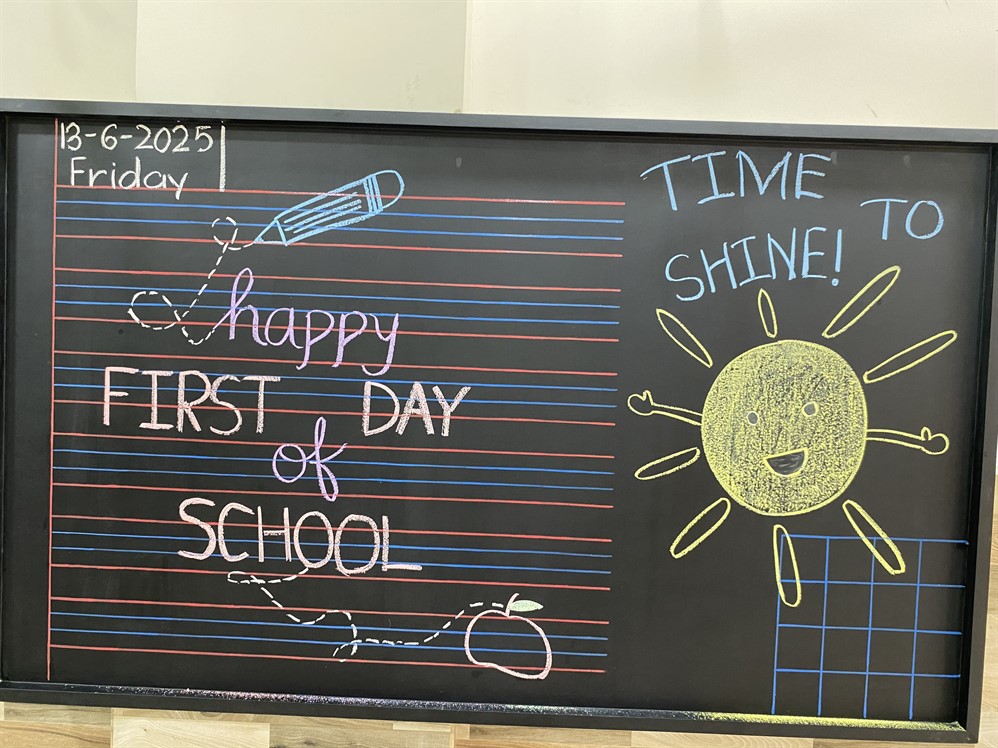 13-6-2025
Friday
happy
FIRST DAY
of
SCHOOL
TIME
TO
SHINE!